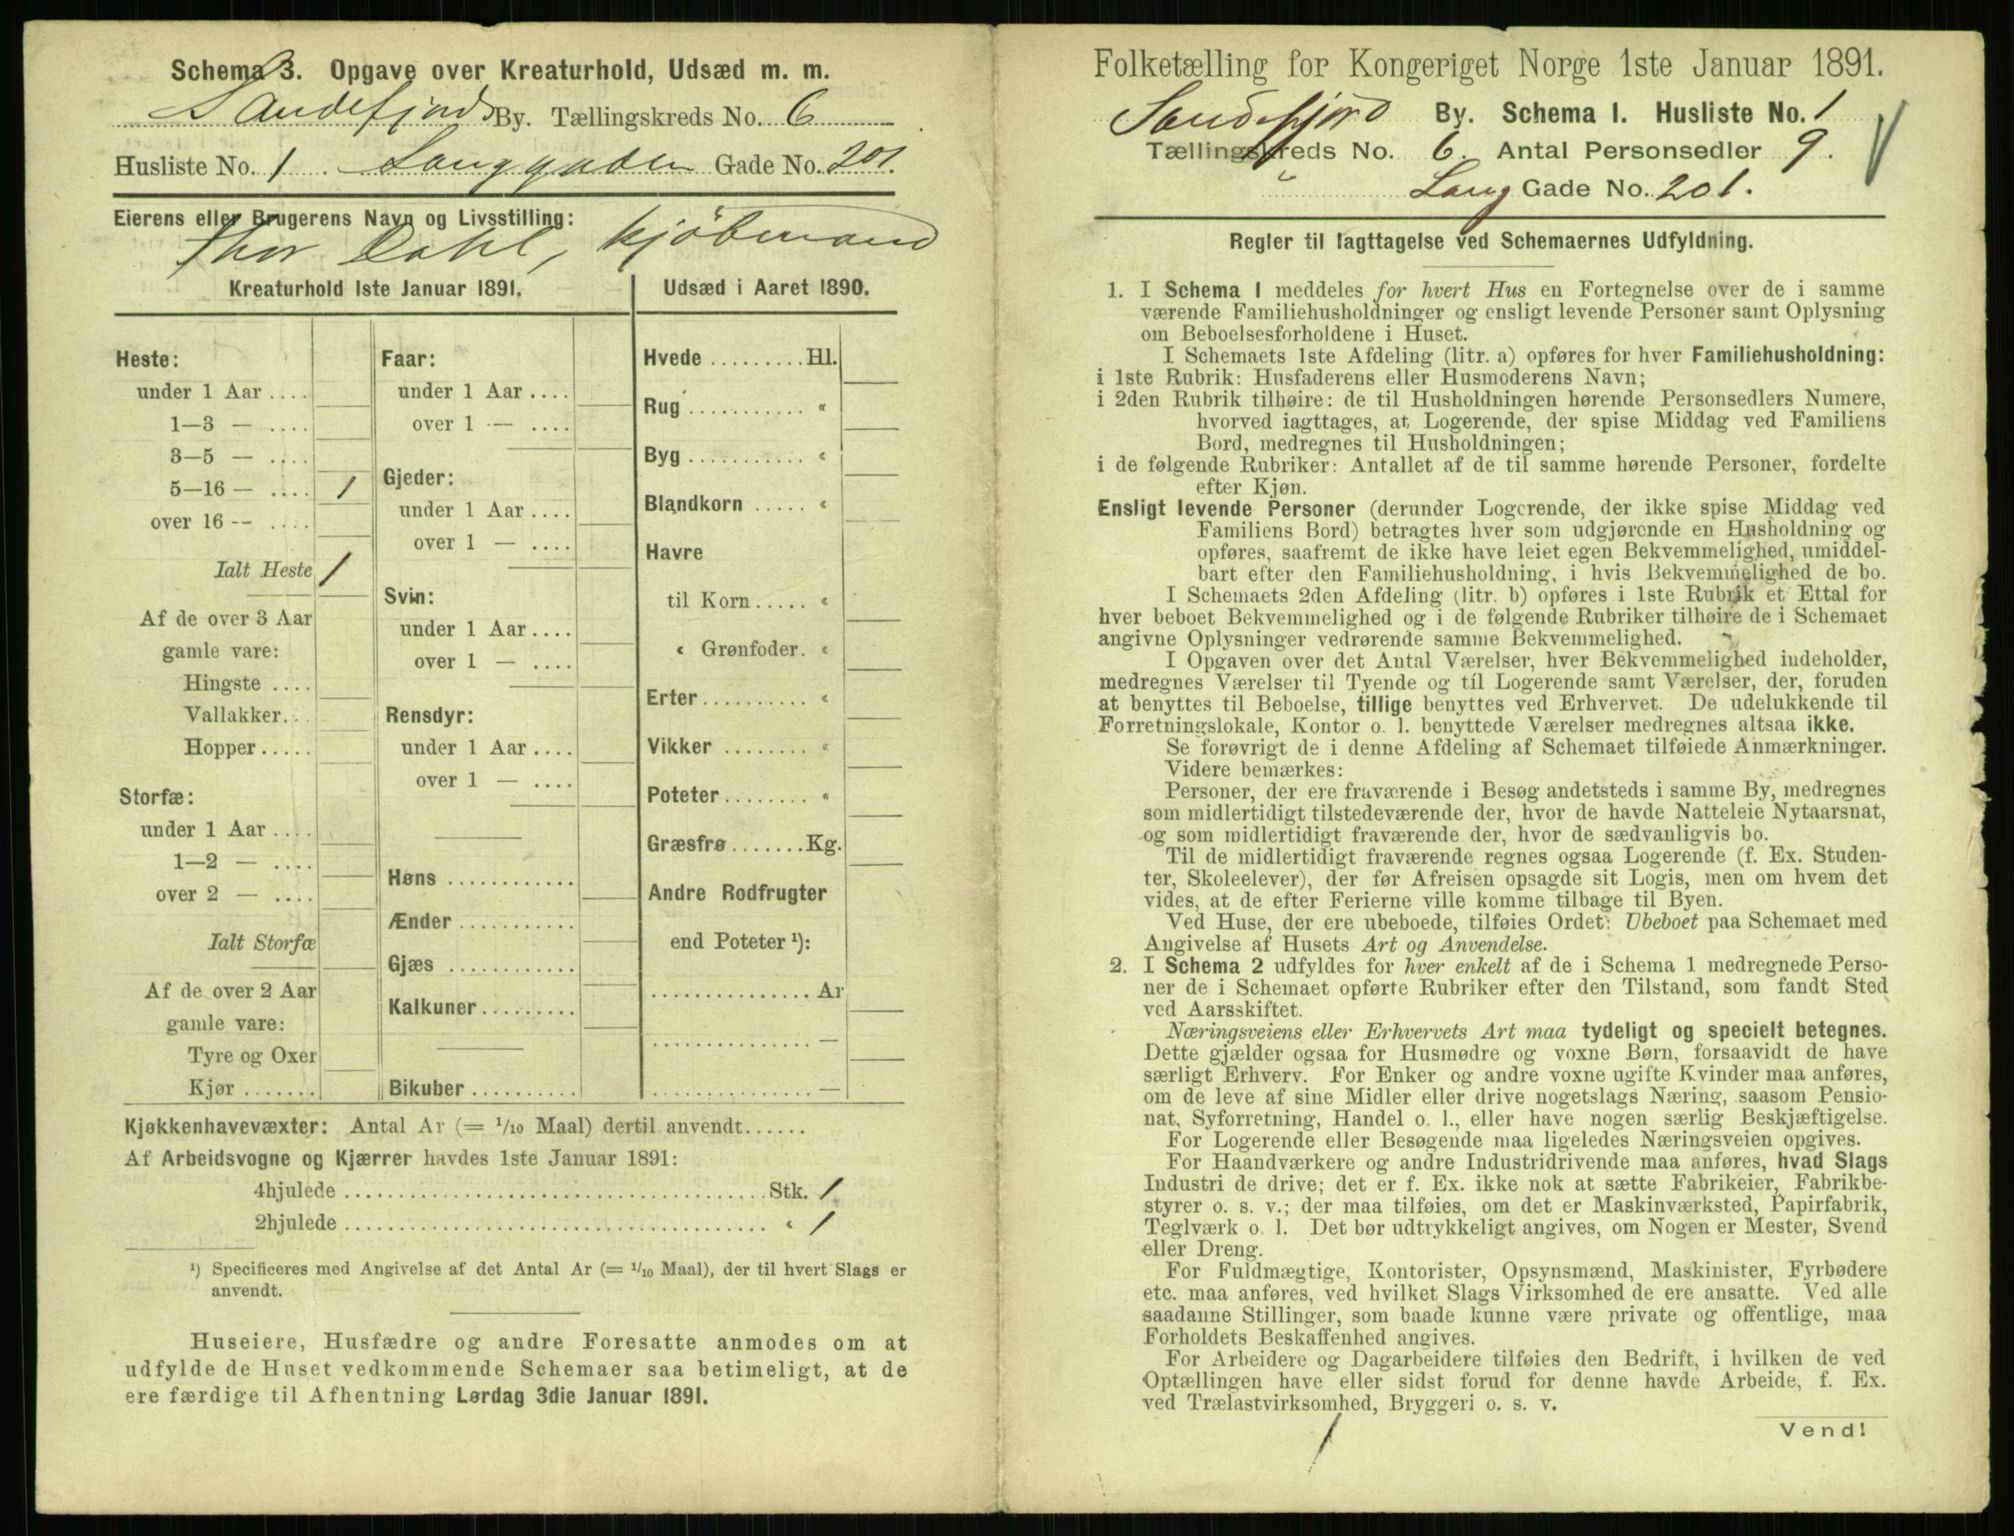 Schema 3. Opgave over Kreaturhold, Udsæd m. m.
Sandefjords By. Tællingskreds No. 6
Husliste No. 1. Langgaden Gade No. 201.
Eierens eller Brugerens Navn og Livsstilling:
Thor Dahl, Kjøbmand
Kreaturhold 1ste Januar 1891.
Heste:
under 1 Aar ....
1—3 — ....
3—5 — ....
5—16 — .... 1
over 16 — ....
Ialt Heste 1
Af de over 3 Aar
gamle vare:
Hingste ....
Vallakker...
Hopper.....
Storfæ:
under 1 Aar ....
1—2 — ....
over 2 — ....
Ialt Storfæ
Af de over 2 Aar
gamle vare:
Tyre og Oxer
Kjør.......
Faar:
under 1 Aar ....
over 1 — ....
Gjeder:
under 1 Aar ....
over 1 — ....
Svin:
under 1 Aar ....
over 1 — ....
Rensdyr:
under 1 Aar ....
over 1 — ....
Høns ............
Ænder ...........
Gjæs ............
Kalkuner.........
Bikuber ..........
Udsæd i Aaret 1890.
Hvede .........Hl.
Rug ........... “
Byg ........... “
Blandkorn ..... “
Havre
til Korn..... “
“ Grønfoder. “
Erter.......... “
Vikker ........ “
Poteter........ “
Græsfrø.......Kg.
Andre Rodfrugter
end Poteter ¹):
...............Ar
............... —
............... —
Kjøkkenhavevæxter: Antal Ar (= 1/10 Maal) dertil anvendt......
Af Arbeidsvogne og Kjærrer havdes 1ste Januar 1891:
4hjulede ........................................Stk. 1
2hjulede ........................................ “ 1
¹) Specificeres med Angivelse af det Antal Ar (= 1/10 Maal), der til hvert Slags er
anvendt.
Huseiere, Husfædre og andre Foresatte anmodes om at
udfylde de Huset vedkommende Schemaer saa betimeligt, at de
ere færdige til Afhentning Lørdag 3die Januar 1891.
Folketælling for Kongeriget Norge 1ste Januar 1891.
Sandefjord By. Schema I. Husliste No. 1
Tællingskreds No. 6. Antal Personsedler 9.
“ Lang Gade No. 201.
Regler til Iagttagelse ved Schemaernes Udfyldning.
1. I Schema I meddeles for hvert Hus en Fortegnelse over de i samme
værende Familiehusholdninger og ensligt levende Personer samt Oplysning
om Beboelsesforholdene i Huset.
I Schemaets 1ste Afdeling (litr. a) opføres for hver Familiehusholdning:
i 1ste Rubrik: Husfaderens eller Husmoderens Navn;
i 2den Rubrik tilhøire: de til Husholdningen hørende Personsedlers Numere,
hvorved iagttages, at Logerende, der spise Middag ved Familiens
Bord, medregnes til Husholdningen;
i de følgende Rubriker: Antallet af de til samme hørende Personer, fordelte
efter Kjøn.
Ensligt levende Personer (derunder Logerende, der ikke spise Middag ved
Familiens Bord) betragtes hver som udgjørende en Husholdning og
opføres, saafremt de ikke have leiet egen Bekvemmelighed, umiddel-
bart efter den Familiehusholdning, i hvis Bekvemmelighed de bo.
I Schemaets 2den Afdeling (litr. b) opføres i 1ste Rubrik et Ettal for
hver beboet Bekvemmelighed og i de følgende Rubriker tilhøire de i Schemaet
angivne Oplysninger vedrørende samme Bekvemmelighed.
I Opgaven over det Antal Værelser, hver Bekvemmelighed indeholder,
medregnes Værelser til Tyende og til Logerende samt Værelser, der, foruden
at benyttes til Beboelse, tillige benyttes ved Erhvervet. De udelukkende til
Forretningslokale, Kontor o. l. benyttede Værelser medregnes altsaa ikke.
Se forøvrigt de i denne Afdeling af Schemaet tilføiede Anmærkninger.
Videre bemærkes:
Personer, der ere fraværende i Besøg andetsteds i samme By, medregnes
som midlertidigt tilstedeværende der, hvor de havde Natteleie Nytaarsnat,
og som midlertidigt fraværende der, hvor de sædvanligvis bo.
Til de midlertidigt fraværende regnes ogsaa Logerende (f. Ex. Studen-
ter, Skoleelever), der før Afreisen opsagde sit Logis, men om hvem det
vides, at de efter Ferierne ville komme tilbage til Byen.
Ved Huse, der ere ubeboede, tilføies Ordet: Ubeboet paa Schemaet med
Angivelse af Husets Art og Anvendelse.
2. I Schema 2 udfyldes for hver enkelt af de i Schema 1 medregnede Perso-
ner de i Schemaet opførte Rubriker efter den Tilstand, som fandt Sted
ved Aarsskiftet.
Næringsveiens eller Erhvervets Art maa tydeligt og specielt betegnes.
Dette gjælder ogsaa for Husmødre og voxne Børn, forsaavidt de have
særligt Erhverv. For Enker og andre voxne ugifte Kvinder maa anføres,
om de leve af sine Midler eller drive nogetslags Næring, saasom Pensio-
nat, Syforretning, Handel o. l., eller have nogen særlig Beskjæftigelse.
For Logerende eller Besøgende maa ligeledes Næringsveien opgives.
For Haandværkere og andre Industridrivende maa anføres, hvad Slags
Industri de drive; det er f. Ex. ikke nok at sætte Fabrikeier, Fabrikbe-
styrer o. s. v.; der maa tilføies, om det er Maskinværksted, Papirfabrik,
Teglværk o. l. Det bør udtrykkeligt angives, om Nogen er Mester, Svend
eller Dreng.
For Fuldmægtige, Kontorister, Opsynsmænd, Maskinister, Fyrbødere
etc. maa anføres, ved hvilket Slags Virksomhed de ere ansatte. Ved alle
saadanne Stillinger, som baade kunne være private og offentlige, maa
Forholdets Beskaffenhed angives.
For Arbeidere og Dagarbeidere tilføies den Bedrift, i hvilken de ved
Optællingen have eller sidst forud for denne havde Arbeide, f. Ex.
ved Trælastvirksomhed, Bryggeri o. s. v.
1
Vend!